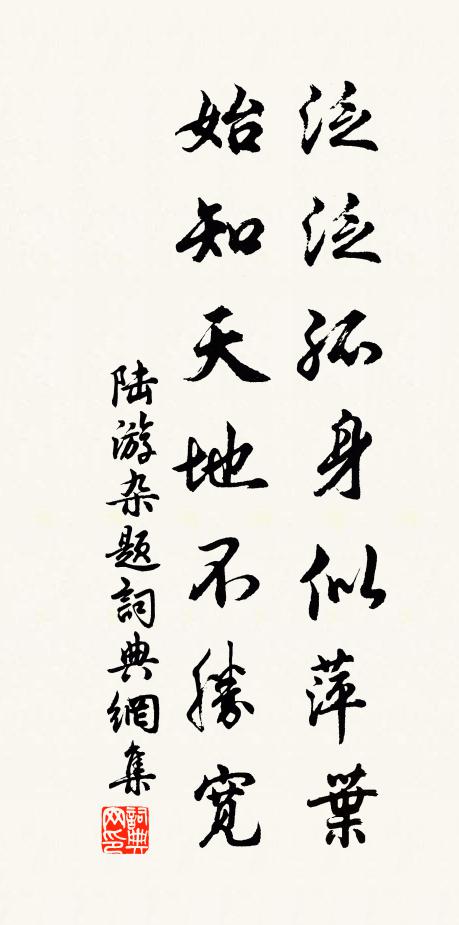 泛泛孤身似萍葉
始知天地不勝寬
陆游杂题詞典網集
詞典网印